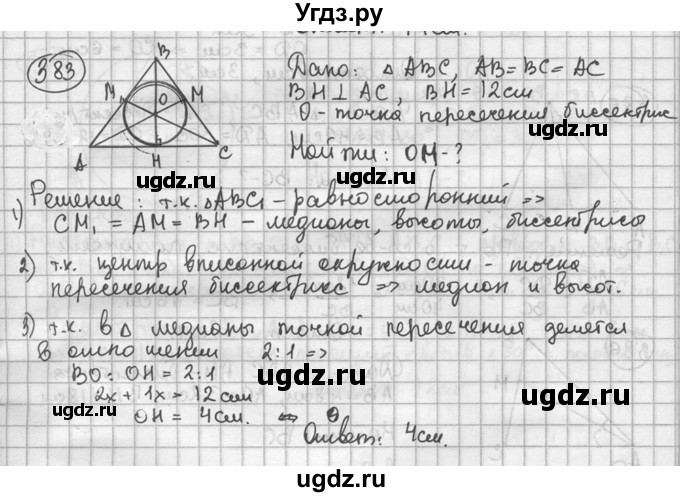 Угдз.ру
383
B
M
O
M
A
H
C
Дано: △ ABC, AB=BC=AC
BH⊥AC, BH=12см
O-точка пересечения биссектрис
Найти: OM-?
1) Решение: т.к. △ABC₁-равносторонний =>
CM₁ = AM = BH - медианы, высоты, биссектрисы
2) т.к. центр вписанной окружности - точка
пересечения биссектрис => медиан и высот.
3) т.к. в △ медианы точкой пересечения делятся
в отношении 2:1 =>
BO:OH = 2:1
2x+1x=12см
OH = 4см.
Ответ: 4см.
ugdz.ru
ugdz.ru
ugdz.ru
ugdz.ru
ugdz.ru
ugdz.ru
ugdz.ru
ugdz.ru
ugdz.ru
ugdz.ru
ugdz.ru
ugdz.ru
ugdz.ru